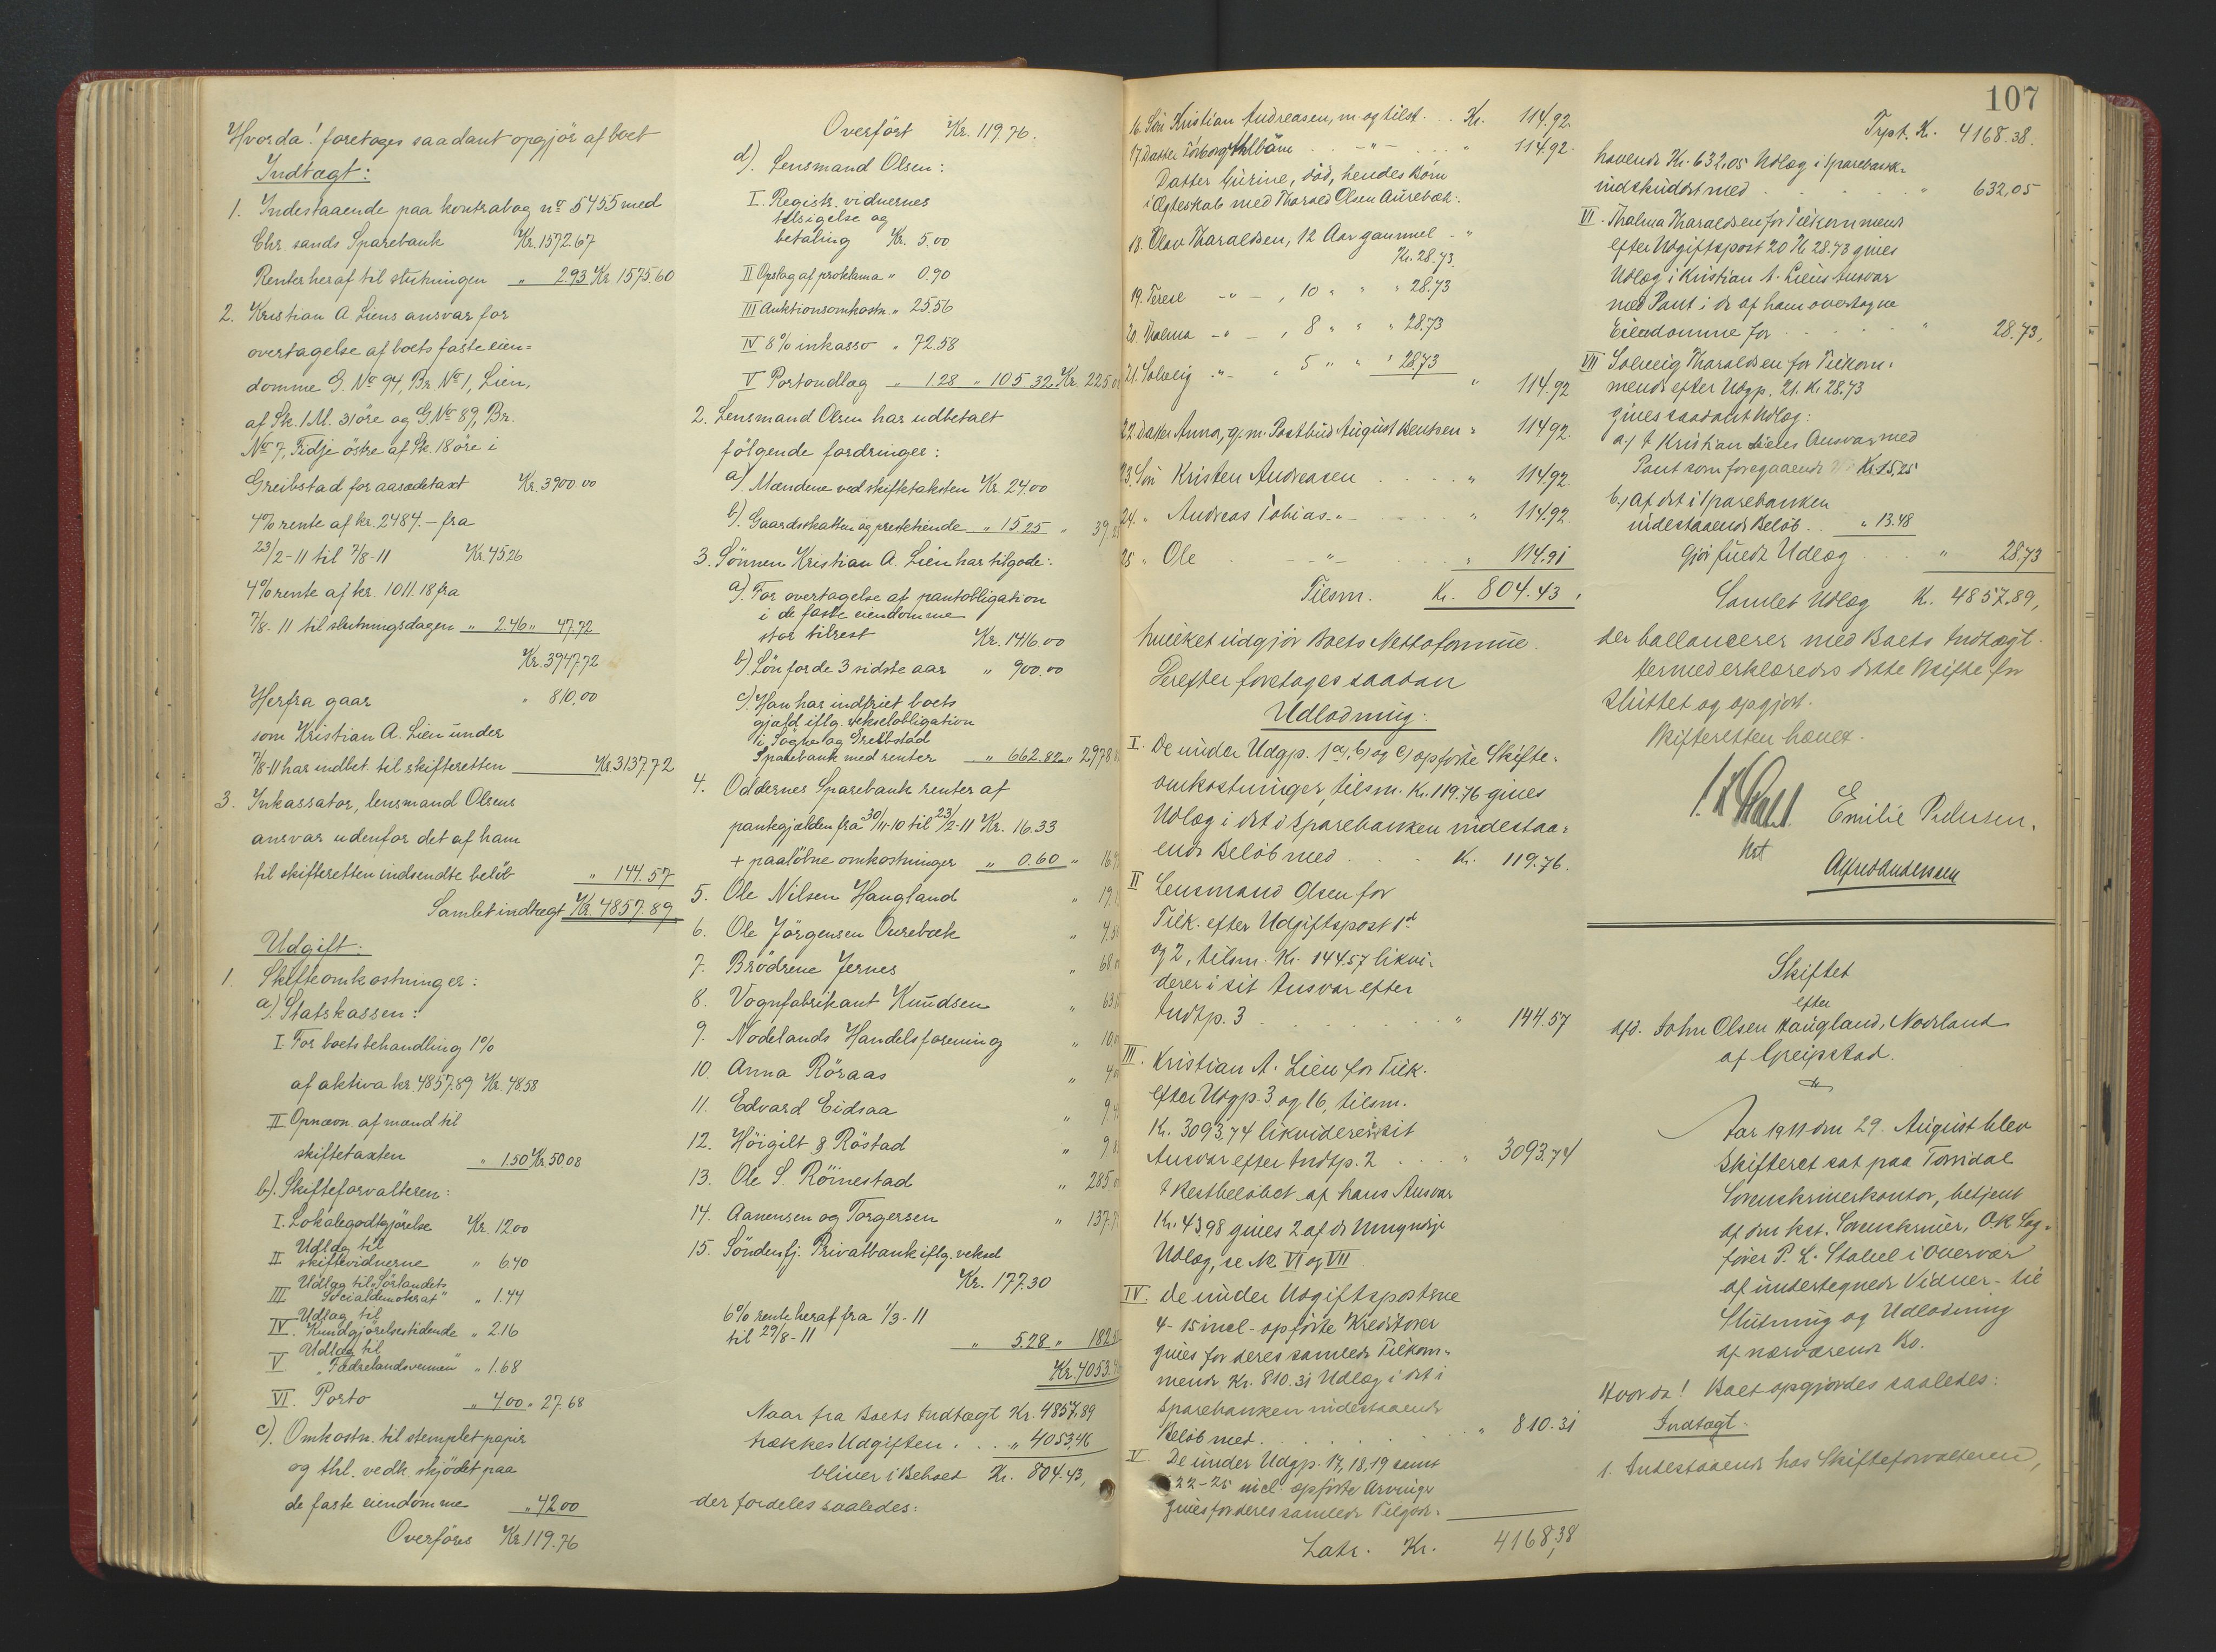 Hvorda! foretages saadant opgjör af boet
Indtægt:
1. Indestaaende paa kontrabog no 5455 med
Chr. sands Sparebank Kr. 1572.67
Renter heraf til slutningen " 2.93 Kr. 1575.60
2. Kristian A Liens ansvar for
overtagelse af boets faste eien=
domme G. No 94, Br. No 1, Lien,
af Sk. 1 M. 31 öre og G. No 89, Br.
No 7, Fidje östre af Sk. 18 öre i
Greibstad for aasædetaxt Kr. 3900.00
4% rente af kr. 2484.- fra
23/2-11 til 7/8-11 Kr. 45.26
4% rente af kr. 1011.18 fra
7/8-11 til slutningsdagen " 2.46 " 47.72
Kr. 3947.72
Herfra gaar " 810.00
som Kristian A. Lien under
7/8-11 har indbet. til skifteretten Kr. 3137.72
3. Inkassator, lensmand Olsens
ansvar udenfor det af ham
til skifteretten indsendte belöb " 144.57
Samlet indtægt Kr. 4857.89
Udgift:
1. Skifteomkostninger:
a). Statskassen:
I. For boets behandling 1%
af aktiva kr. 4857.89 Kr. 48.58
II Opnævn. af mænd til
skiftetaxten " 1.50 Kr. 50.08
b). Skifteforvalteren:
I. Lokalegodtgjörelse Kr. 12.00
II Udlæg til
skiftevidnerne " 6.40
III Udlæg til "Sörlandets
Socialdemokrat" " 1.44
IV. Udlæg til
Kundgjörelsestidende " 2.16
V Udlæg til
"Fædrelandsvennen" " 1.68
VI. Porto " 4.00 " 27.68
c). Omkostn. til stemplet papir
og thl. vedk. skjödet paa
de faste eiendomme " 42.00
Overföres Kr. 119.76
Overfört Kr. 119.76.
d). Lensmand Olsen:
I. Registr. vidnernes
tilsigelse og
betaling Kr. 5.00
II Opslag af proklama " 0.90
III Auktionsomkostn. " 25.56
IV 8% inkasso " 72.58
V Portoudlæg " 1.28 " 105.32 Kr. 225.0
2. Lensmand Olsen har udbetalt
fölgende fordringer:
a). Mændene ved skiftetaksten Kr. 24.00
b). Gaardsskatten og prestetiende " 15.25 " 39.25
3. Sönnen Kristian A. Lien har tilgode:
a). For overtagelse af pantobligation
i de faste eiendomme
stor tilrest Kr. 1416.00
b). Lön for de 3 sidste aar " 900.00
c). Han har indfriet boets
gjæld iflg. vekselobligation
i Sögne og Greibstad
Sparebank med renter " 662.82 " 2978
4. Oddernes Sparebank renter af
pantegjælden fra 30/11-10 til 23/2-11 Kr. 16.33
+ paalöbne omkostninger " 0.60 " 16.9
5. Ole Nilsen Haugland " 19.
6. Ole Jörgensen Ourebæk " 4.50
7. Brödrene Jernes " 68
8. Vognfabrikant Knudsen " 63
9. Nodelands Handelsforening " 10
10. Anna Röraas " 4.
11. Edvard Eidsaa " 9
12. Höigilt & Röstad " 9
13. Ole S. Röinestad " 285
14. Aanensen og Torgersen " 137.
15. Söndenfj. Privatbank iflg. veksel
Kr. 177.30
6% rente heraf fra 1/3-11
til 29/8-11 " 5.28 " 182
Kr. 4053.
Naar fra Boets Indtægt Kr. 4857,89
trækkes Udgiften . . . " 4053,46
bliver i Behold Kr. 804.43,
der fordeles saaledes:
107
16. Sön Kristian Andreasen, m. og tilst. . . Kr. 114.92.
17. Datter Torborg . . -"- . . . " 114.92.
Datter Gurine, död, hendes Börn
i Ægteskab med Tharald Olsen Aurebæk:
18. Olav Tharaldsen, 12 Aar gammel . "
Kr. 28.73.
19. Terese -"- , 10 " " " 28.73
20. Thalma -"- , 8 " " " 28.73
21. Solveig -"- , 5 " " " 28.73
" 114.92
22. Datter Anna, g. m. Postbud August Bentsen " 114.92.
23. Sön Kristen Andreasen . . . . " 114.92.
24. " Andreas Tobias -"- . . . . " 114.92.
25 " Ole . -"- . . . " 114.91
Tilsm. Kr. 804.43.
hvilket udgjör Boets Nettoformue.
Derefter foretages saadan
Udlodning:
I. De under Udgp. 1 a), b) og c) opförte Skifte=
omkostninger, tilsm. Kr. 119.76 gives
Udlæg i det i Sparebanken indestaa=
ende Belöb med . . . Kr. 119.76.
II Lensmand Olsen for
Tilk. efter Udgiftspost 1 d
og 2, tilsm. Kr. 144.57 likvi=
derer i sit Ansvar efter
Indtp. 3 . . . . . . . " 144.57
III. Kristian A. Lien for Tilk.
efter Udgp. 3 og 16, tilsm.
Kr. 3093.74 likviderer i sit
Ansvar efter Indtp. 2 . . . " 3093.74
I Restbelöbet af hans Ansvar
Kr. 43.98 gives 2 af de Umyndige
Udlæg, se No VI og VII
IV. De under Udgiftsposterne
4-15 incl. opförte Kreditorer
gives for deres samlede Tilkom=
mende Kr. 810.31 Udlæg i det i
Sparebanken indestaaende
Belöb med . . . . . " 810.31
V De under Udgp. 17, 18, 19 samt
22-25 incl. opförte Arvinger
gives for deres samlede Tilgode=
Latr. Kr. 4168,38
Trpt. Kr. 4168.38.
havende Kr. 632,05 Udlæg i Sparebank=
indskuddet med . . . . " 632,05
VI. Thalma Tharaldsen for Tilkommende
efter Udgiftspost 20 Kr. 28.73 gives
Udlæg i Kristian A. Liens Ansvar
med Pant i de af ham overtagne
Eiendomme for . . . . " 28.73,
VII Solveig Tharaldsen for Tilkom=
mende efter Udgp. 21. Kr. 28.73
gives saadant Udlæg:
a.) I Kristian Liens Ansvar med
Pant som foregaaende Kr. 15,25
b.) Af det i Sparebanken
indestaaende Belöb . . " 13.48
Gjör fuldt Udlæg . . " 28.73
Samlet Udlæg Kr. 4857,89,
der ballancerer med Boets Indtægt.
Hermed erklæredes dette Skifte for
sluttet og opgjort.
Skifteretten hævet.
Emilie Pedersen.
kst
Alfred Anderssen
Skiftet
efter
afd. John Olsen Haugland, Nodeland
af Greipstad.
Aar 1911 den 29. August blev
Skifteret sat paa Torridal
Sorenskriverkontor, betjent
af den kst. Sorenskriver, O.R. Sag=
förer P. L. Stabel i Overvær
af undertegnede Vidner - til
Slutning og Udlodning
af nærværende Bo.
Hvorda! Boet opgjordes saaledes:
Indtægt.
1. Indestaaende hos Skifteforvalteren,